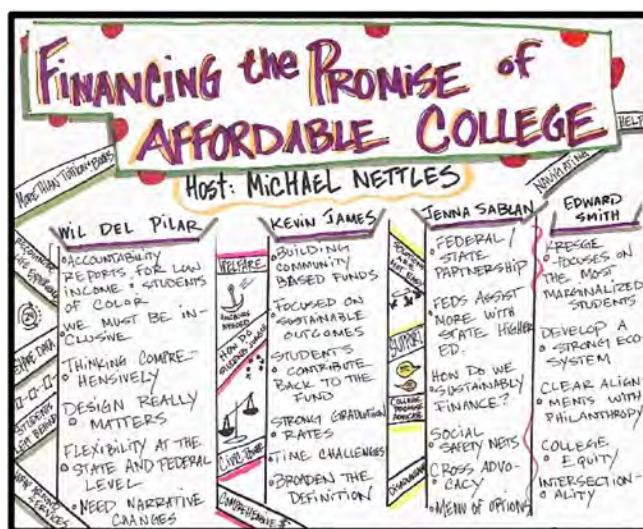 FINANCING the PROMISE of
AFFORDABLE COLLEGE
HOST: MICHAEL NETTLES
HELP
NAVIGATING
MORE THAN TUITION + BOOKS
WIL DEL PILAR
ACCOUNTABILITY
REPORTS FOR LOW
INCOME STUDENTS
OF COLOR
WE MUST BE IN-
CLUSIVE
THINKING COMPRE-
HENSIVELY
DESIGN REALLY
MATTERS
FLEXIBILITY AT THE
STATE AND FEDERAL
LEVEL
NEED NARRATIVE
CHANGES
DATA
STUDENTS
LEFT BEHIND
SERVICES
WELFARE
ANCHORS
NEEDED
HOW DO
CIVIC
COMPREHENSIVE $
KEVIN JAMES
BUILDING
COMMUNITY
BASED FUNDS
FOCUSED ON
SUSTAINABLE
OUTCOMES
STUDENTS
CONTRIBUTE
BACK TO THE
FUND
STRONG GRADUATION
RATES
TIME CHALLENGES
BROADEN THE
DEFINITION
ARE
NOT EASY
SUPPORT
COLLEGE PROMISE
ADVOCATE
JENNA SABLAN
FEDERAL/
STATE
PARTNERSHIP
FEDS ASSIST
MORE WITH
STATE HIGHER
ED.
HOW DO WE
SUSTAINABLY
FINANCE?
SOCIAL
SAFETY NETS
CROSS ADVO-
CACY
MENU OF OPTIONS
EDWARD
SMITH
KRESGE
FOCUSES ON
THE MOST
MARGINALIZED
STUDENTS
DEVELOP A
STRONG ECO
SYSTEM
CLEAR ALIGN
MENTS WITH
PHILANTHROPY
COLLEGE
EQUITY
INTERSECTION-
ALITY